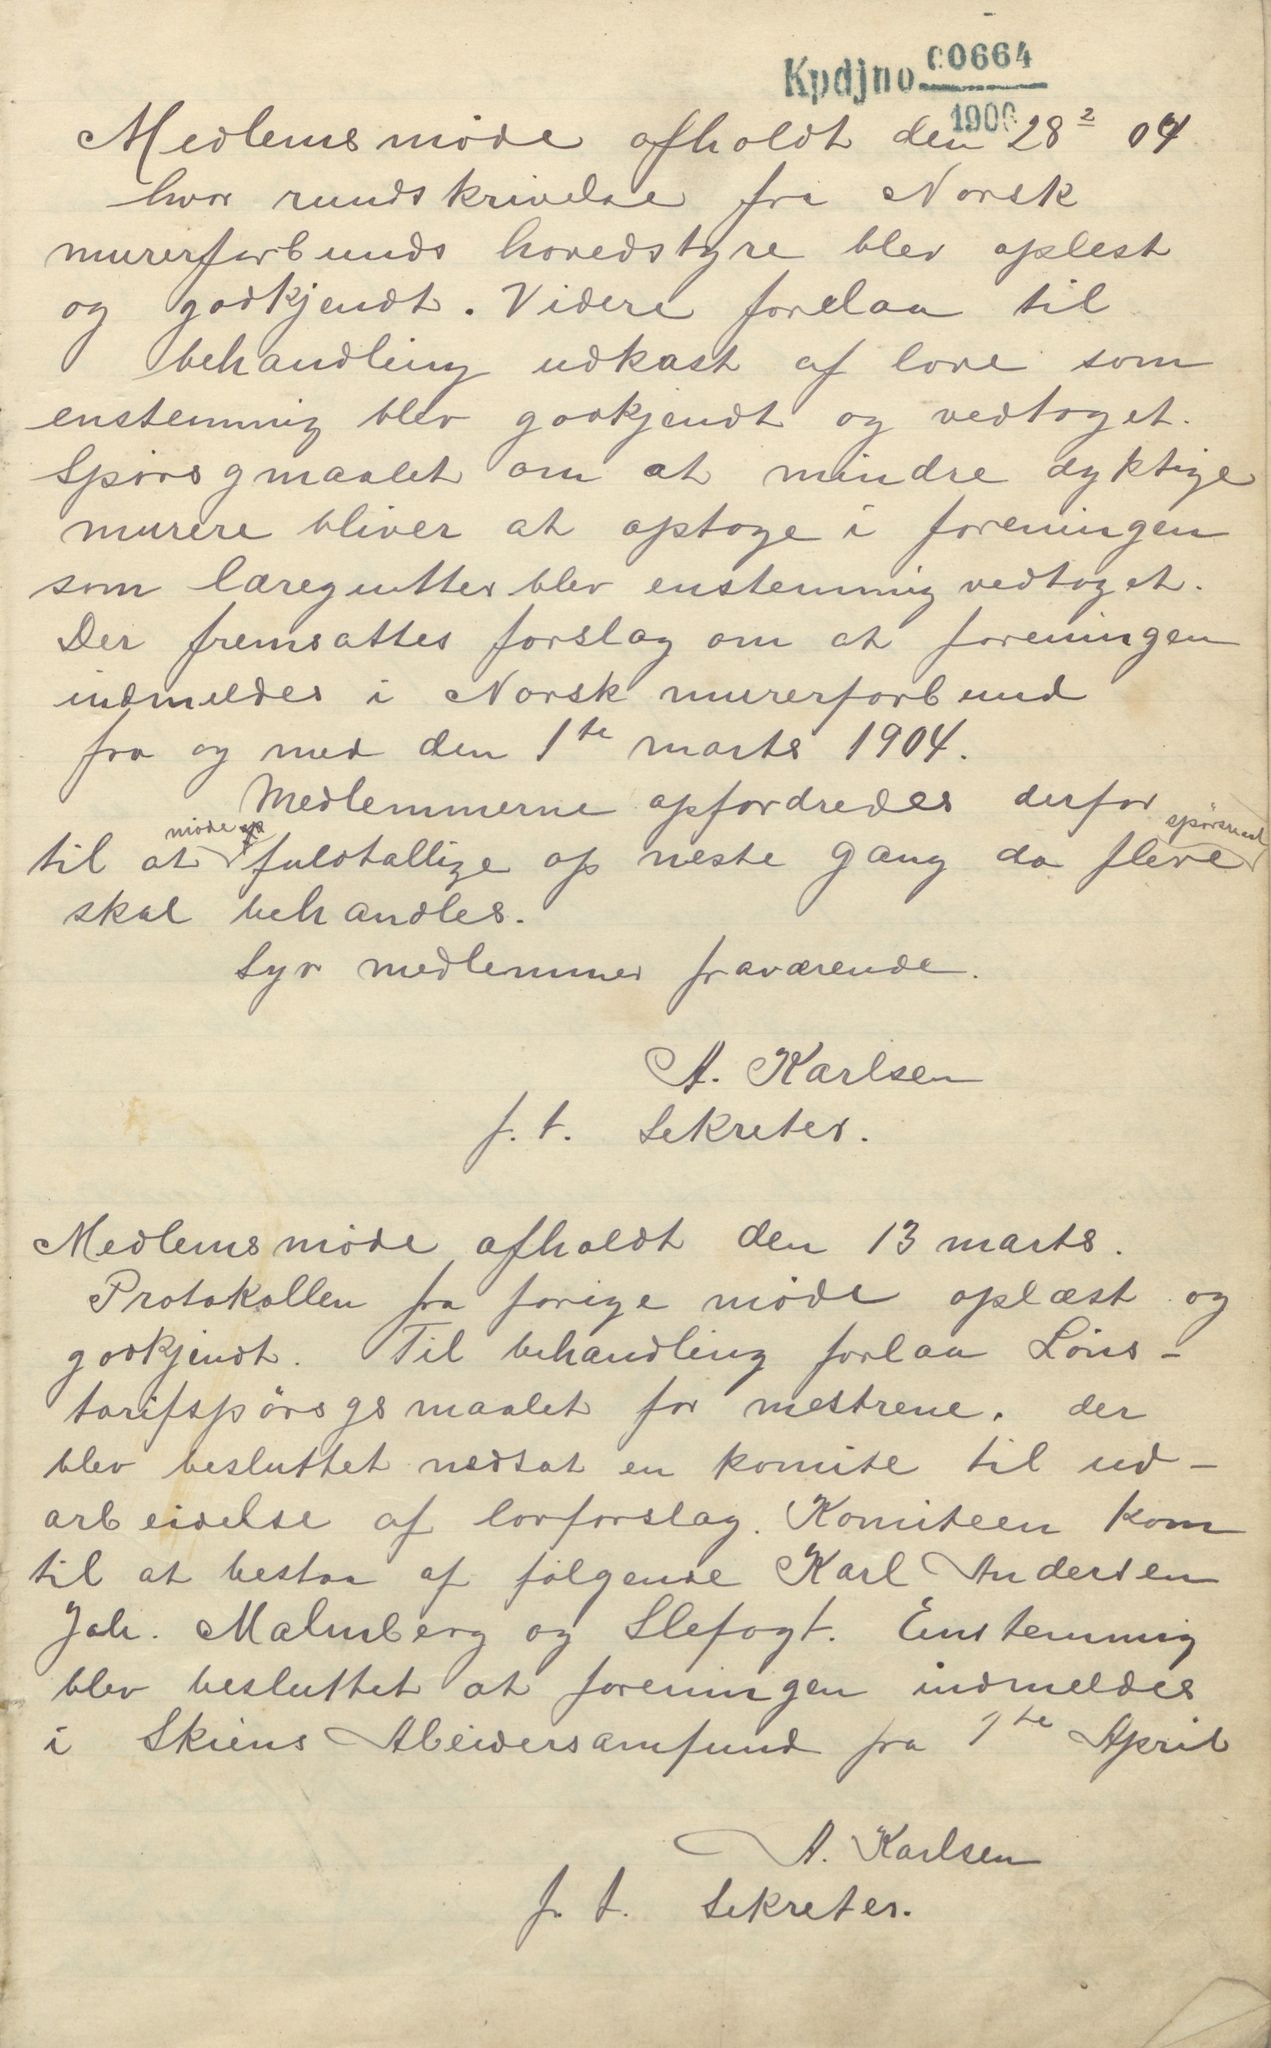 Kpdjno 00664
1900
Medlemsmöde afholdt den 28 2 04
hvor rundskrivelse fra Norsk
murerforbunds hovedstyre blev oplest
og godkjendt. Videre forelaa til
behandling udkast af love som
enstemmig blev godkjendt og vedtaget.
Spörsgmaalet om at mindre dyktige
murere bliver at optage i foreningen
som læregutter blev enstemmig vedtaget.
Der fremsattes forslag om at foreningen
indmeldes i Norsk murerforbund
fra og med den 1te marts 1904.
Medlemmerne opfordredes derfor
til at möde fuldtallige op neste gang da flere spörsmaal
skal behandles.
Syv medlemmer fraværende.
A. Karlsen
f. t. Sekretær.
Medlemsmöde afholdt den 13 marts.
Protokollen fra forige möde oplæst og
godkjendt. Til behandling forlaa Löns-
tarifspörsgsmaalet for mestrene. der
blev besluttet nedsat en komite til ud-
arbeidelse af lovforslag. Komiteen kom
til at bestaa af fölgende Karl Andersen
Joh. Malmberg og Slefogt. Enstemmig
blev besluttet at foreningen indmeldes
i Skiens Abeidersamfund fra 1te April
A. Karlsen
f. t. Sekretær.